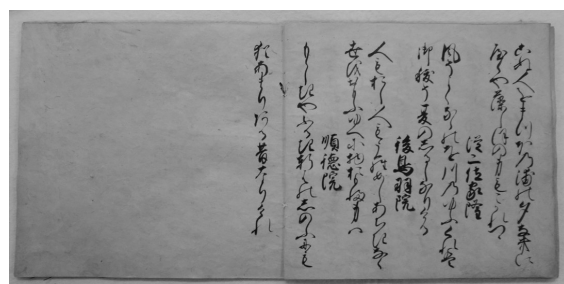 こぬ人をまつほの浦の夕なきに
やくや藻しほの身もこかれつゝ
従二位家隆
風そよくならのを川のゆふくれは
御禊そ夏のしるしなりける
後鳥羽院
人もおし人もうらめしあちきなく
世をおもふゆへに物おもふ身は
順徳院
もゝしきやふるき軒はのしのふにも
猶あまりある昔なりけり